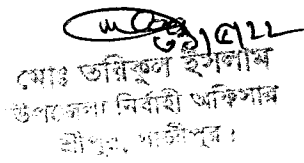 ৩১/৫/২২
মোঃ তরিকুল ইসলাম
উপজেলা নির্বাহী অফিসার
শ্রীপুর, গাজীপুর।